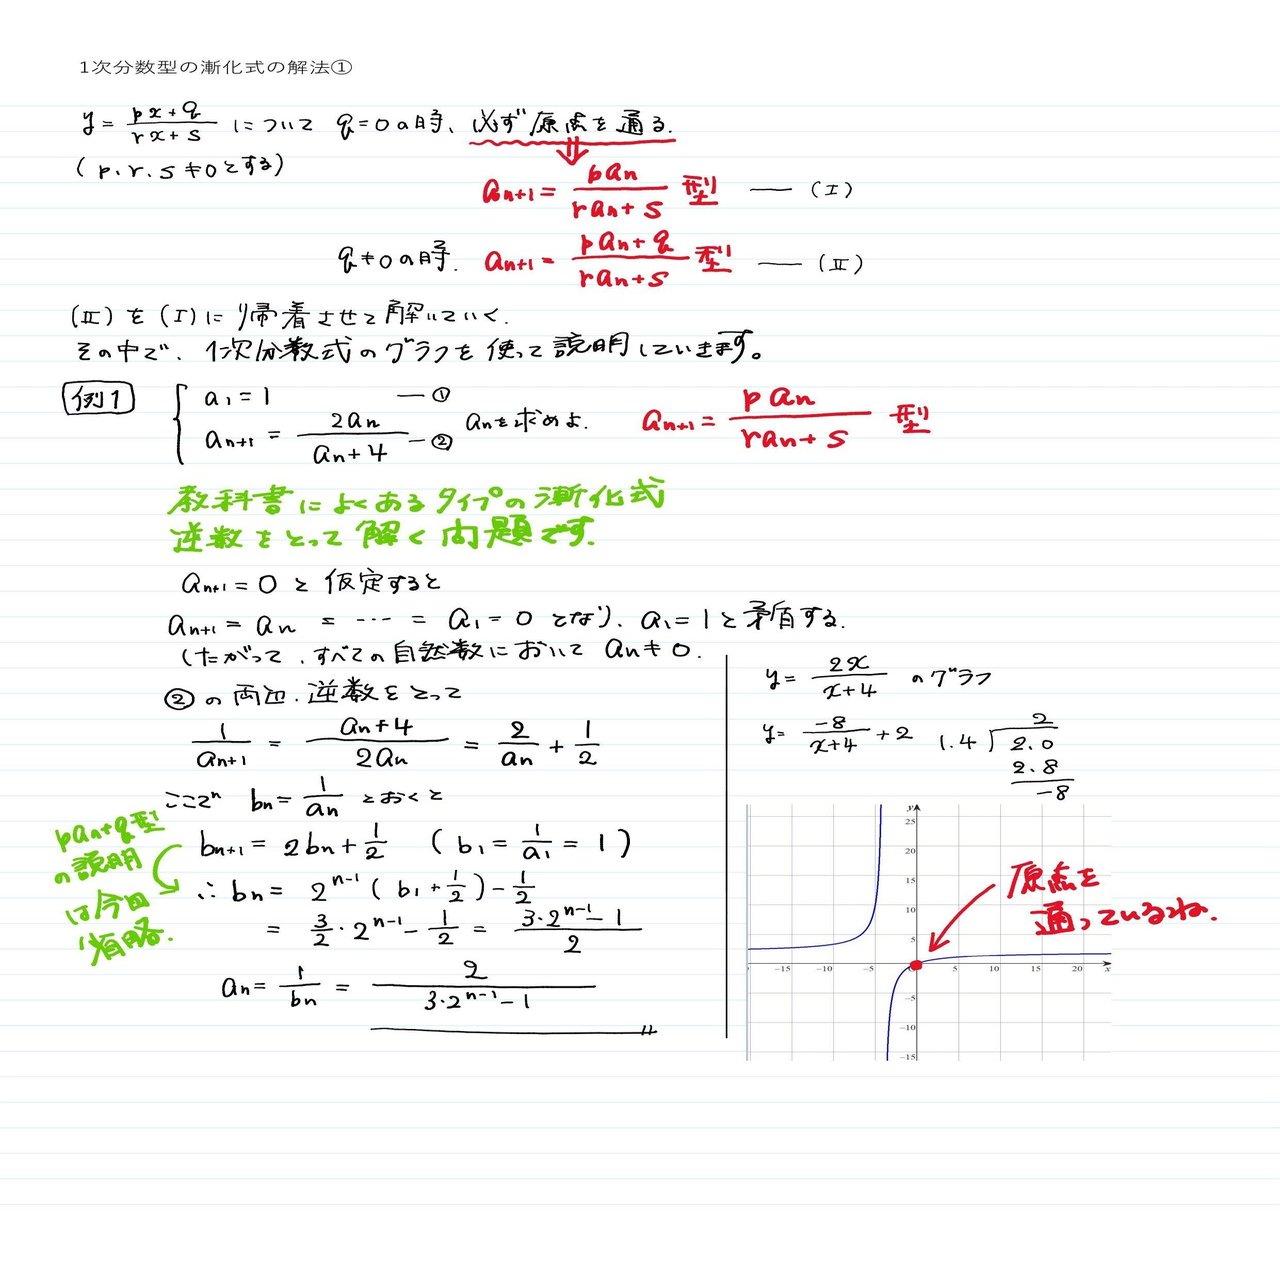 1次分数型の漸化式の解法①
y = (px+q)/(rx+s) について q=0の時、必ず原点を通る.
(p.r.s≠0とする)
an+1 = pan/(ran+s) 型 — (I)
q≠0の時. an+1 = (pan+q)/(ran+s) 型 — (II)
(II)を(I)に帰着させて解いていく.
その中で、1次分数式のグラフを使って説明していきます。
例1
a1=1 —①
an+1 = 2an/(an+4) —② anを求めよ.
an+1 = pan/(ran+s) 型
教科書によくあるタイプの漸化式
逆数をとって解く問題です.
an+1=0と仮定すると
an+1 = an = … = a1 = 0となり、a1=1と矛盾する.
したがって、すべての自然数において an≠0.
②の両辺.逆数をとって
1/an+1 = (an+4)/2an = 2/an + 1/2
ここで bn = 1/an とおくと
pan+q型
の説明
は今回
省略.
bn+1 = 2bn + 1/2 (b1 = 1/a1 = 1)
∴ bn = 2^(n-1) (b1 + 1/2) - 1/2
= 3/2・2^(n-1) - 1/2 = (3・2^(n-1) - 1)/2
an = 1/bn = 2/(3・2^(n-1) - 1)
y = 2x/(x+4) のグラフ
y = -8/(x+4) + 2
2
1.4 ) 2.0
2.8
-8
y
25
20
15
10
5
-15 -10 -5 0 5 10 15 20 x
-5
-10
-15
原点を
通っているね.